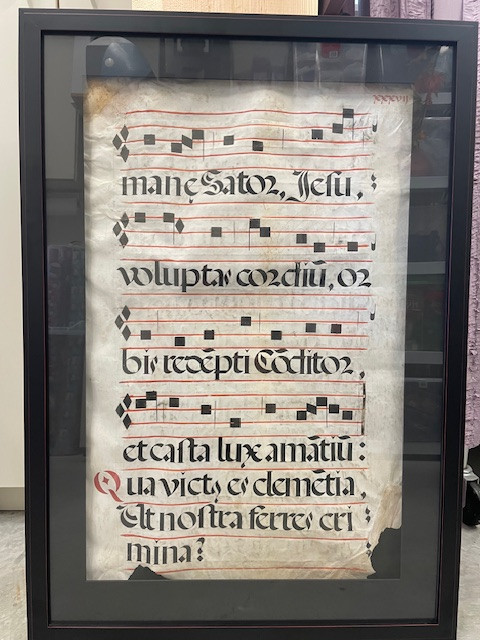 manę Sator, Jesu,:
voluptas cordiū, or
bis redēpti Cōditor,
et casta lux amātiū:
Qua victę es clemētia,
Ut nostra ferres cri
mina?